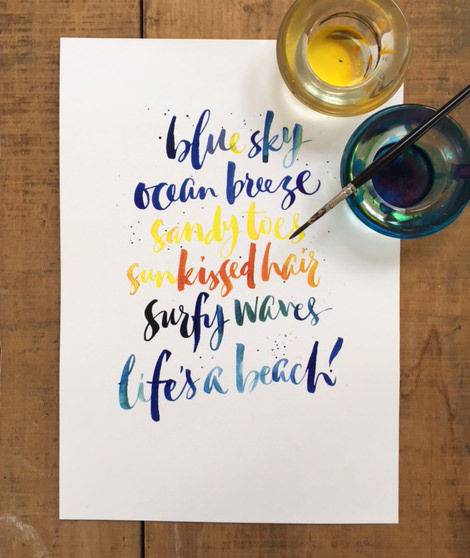 blue sky
ocean breeze
sandy toes
sunkissed hair
surfy waves
life's a beach!